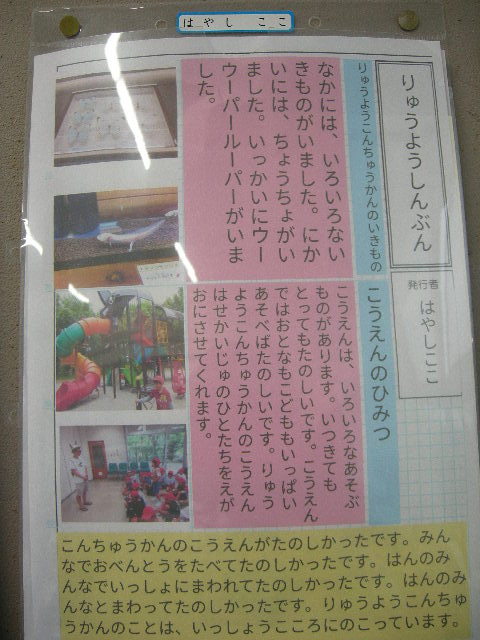 はやし ここ
りゅうようしんぶん
発行者
はやしここ
りゅうようこんちゅうかんのいきもの
なかには、いろいろない
きものがいました。にか
いには、ちょうちょがい
ました。いっかいにウー
ウーパールーパーがいま
した。
こうえんのひみつ
こうえんは、いろいろなあそぶ
ものがあります。いつきても
とってもたのしいです。こうえん
ではおとなもこどももいっぱい
あそべばたのしいです。りゅう
ようこんちゅうかんのこうえん
はせかいじゅのひとたちをえが
おにさせてくれます。
こんちゅうかんのこうえんがたのしかったです。みん
なでおべんとうをたべてたのしかったです。はんのみ
んなでいっしょにまわれてたのしかったです。はんのみ
んなとまわってたのしかったです。りゅうようこんちゅ
うかんのことは、いっしょうこころにのこっています。